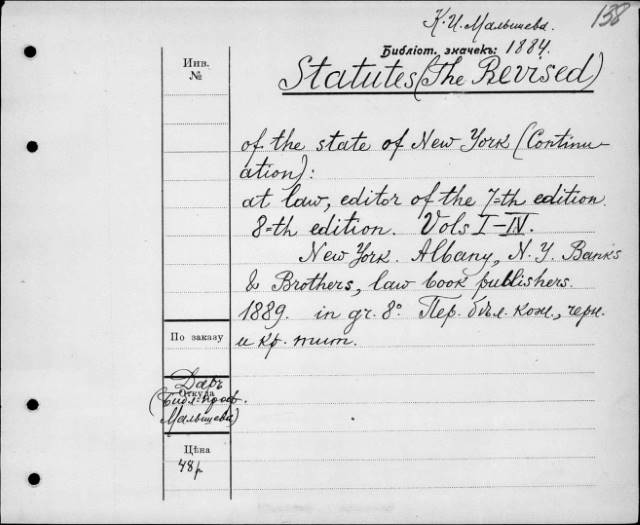 138
К. И. Малышева.
Библіот. значекъ: 1884.
Инв.
№
Statutes (The Revised)
of the state of New York (Continu-
ation):
at law, editor of the 7=th edition.
8=th edition. Vols I-IV.
New York. Albany, N. Y. Banks
& Brothers, law book publishers.
1889. in gr. 8º. Пер. бѣл. кож., черн.
и кр. тит.
По заказу
Даръ
Откуда
(Библ. проф.
Малышева)
Цѣна
48 р